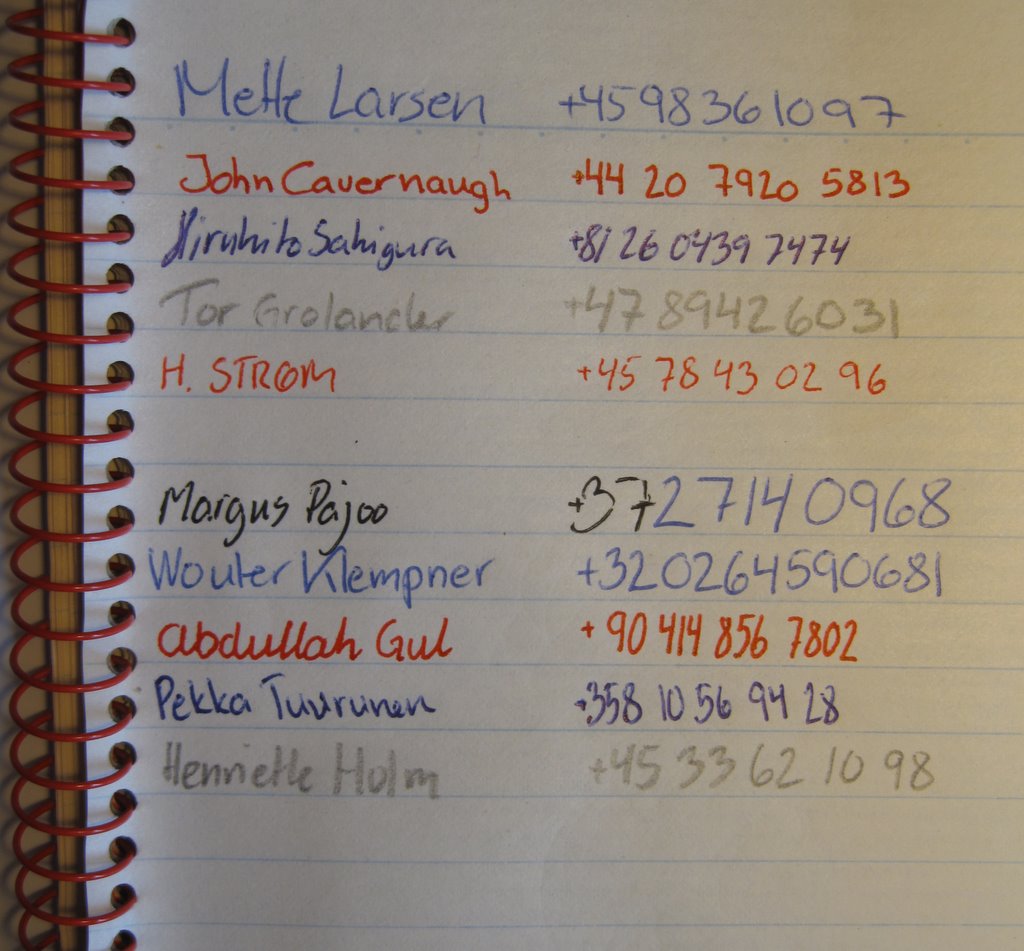 Mette Larsen +4598361097
John Cavernaugh +44 20 7920 5813
Hiruhito Sahigura +81 26 0439 7474
Tor Grolander +4789426031
H. STRØM +45 78 43 02 96
Margus Pajoo +3727140968
Wouter Klempner +3202645590681
Abdullah Gul +90 414 856 7802
Pekka Tuurunen +358 10 56 94 28
Henriette Holm +45 33 62 10 98